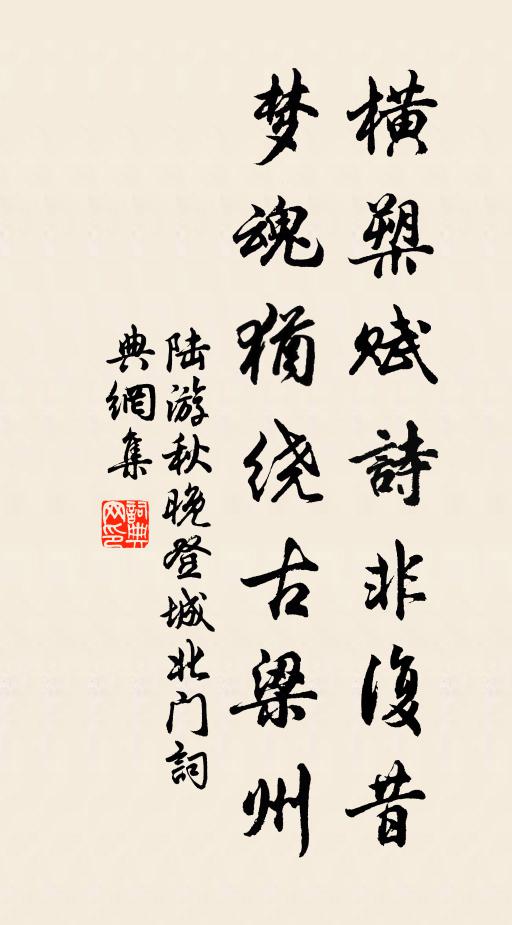 横槊赋詩非復昔
梦魂猶绕古梁州
陆游秋晚登城北门詞
典網集
詞典网印